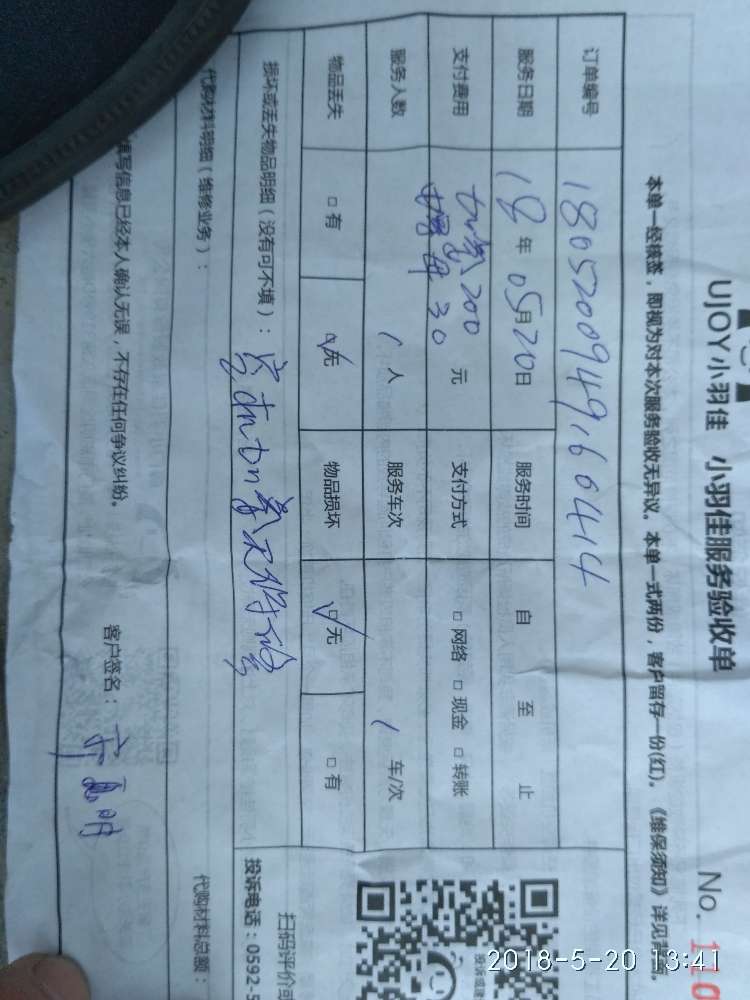 UJOY小羽佳 小羽佳服务验收单
No. 110
本单一经核签，即视为对本次服务验收无异议。本单一式两份，客户留存一份(红)。《维保须知》详见背面。
订单编号 180520094916 60414
服务日期 18年05月20日 服务时间 自 至 止
支付费用 加氟200 30 元 支付方式 □网络 □现金 □转账
服务人数 1人 服务车次 1车/次
物品丢失 □有 □无 物品损坏 □无 □有
损坏或丢失物品明细（没有可不填）：
代购材料明细（维修业务）：
代购材料总额：
填写信息已经本人确认无误，不存在任何争议纠纷。
客户签名：
扫码评价或
投诉电话：0592-5
2018-5-20 13:41